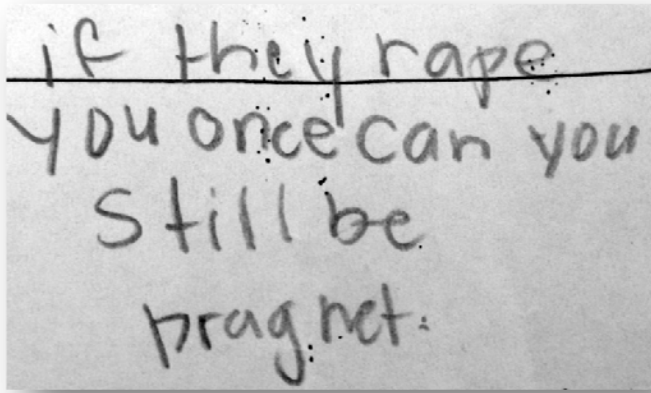 if they rape
you once can you
still be
pragnet.